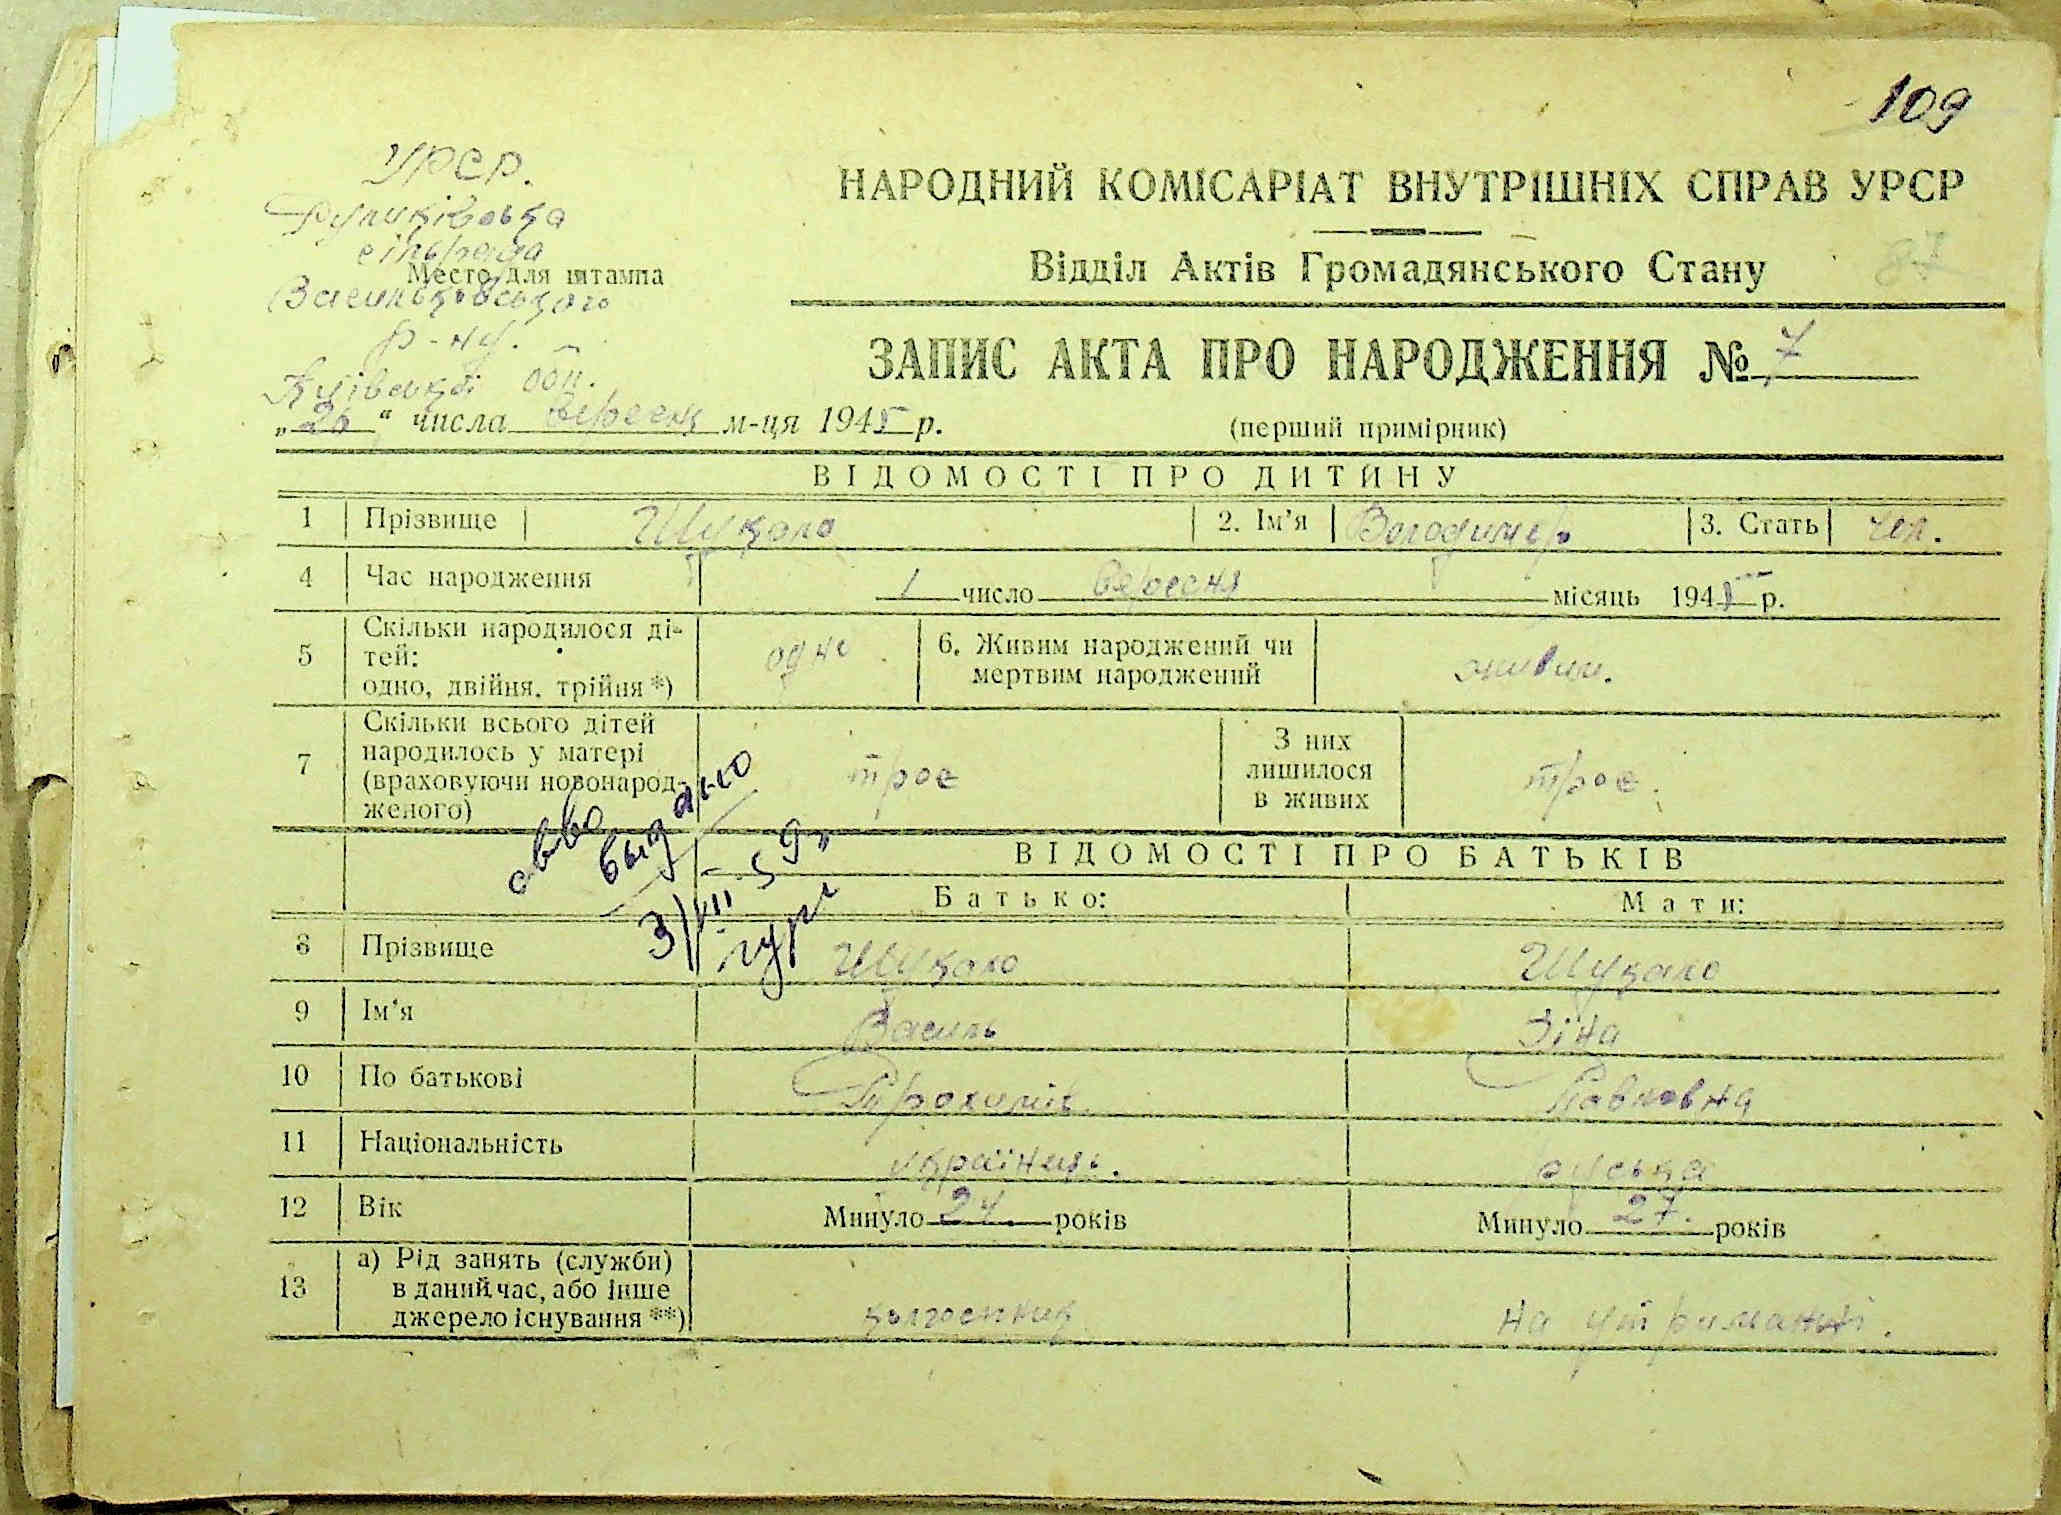 109
УРСР.
сільрада
Место для штампа
Васильківського
р-ну.
Київської обл.
НАРОДНИЙ КОМІСАРІАТ ВНУТРІШНІХ СПРАВ УРСР
Відділ Актів Громадянського Стану
87
ЗАПИС АКТА ПРО НАРОДЖЕННЯ № 7
„26“ числа вересня м-ця 1945 р.
(перший примірник)
ВІДОМОСТІ ПРО ДИТИНУ
1 Прізвище Шукало 2. Ім'я Володимир 3. Стать чол.
4 Час народження 1 число вересня місяць 1945 р.
5 Скільки народилося ді-
тей:
одно, двійня, трійня *) одне
6. Живим народжений чи
мертвим народжений живим.
7 Скільки всього дітей
народилось у матері
(враховуючи новонарод-
женого) троє
З них
лишилося
в живих троє.
выдано
3/VIII 59г
ВІДОМОСТІ ПРО БАТЬКІВ
Батько: Мати:
8 Прізвище Шукало Шукало
9 Ім'я Василь Зіна
10 По батькові Павловна
11 Національність українець. руська
12 Вік Минуло 24. років Минуло 27. років
13 а) Рід занять (служби)
в даний час, або інше
джерело існування **) колгоспник на утриманні.